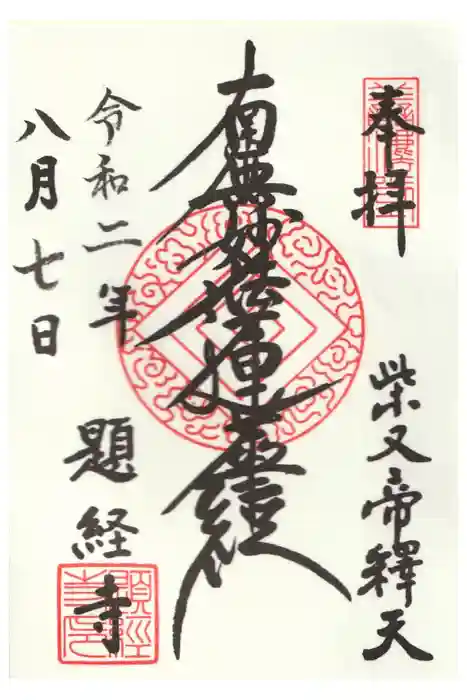 奉拝
柴又帝釋天
南無妙法蓮華經
令和二年
八月七日
題経寺